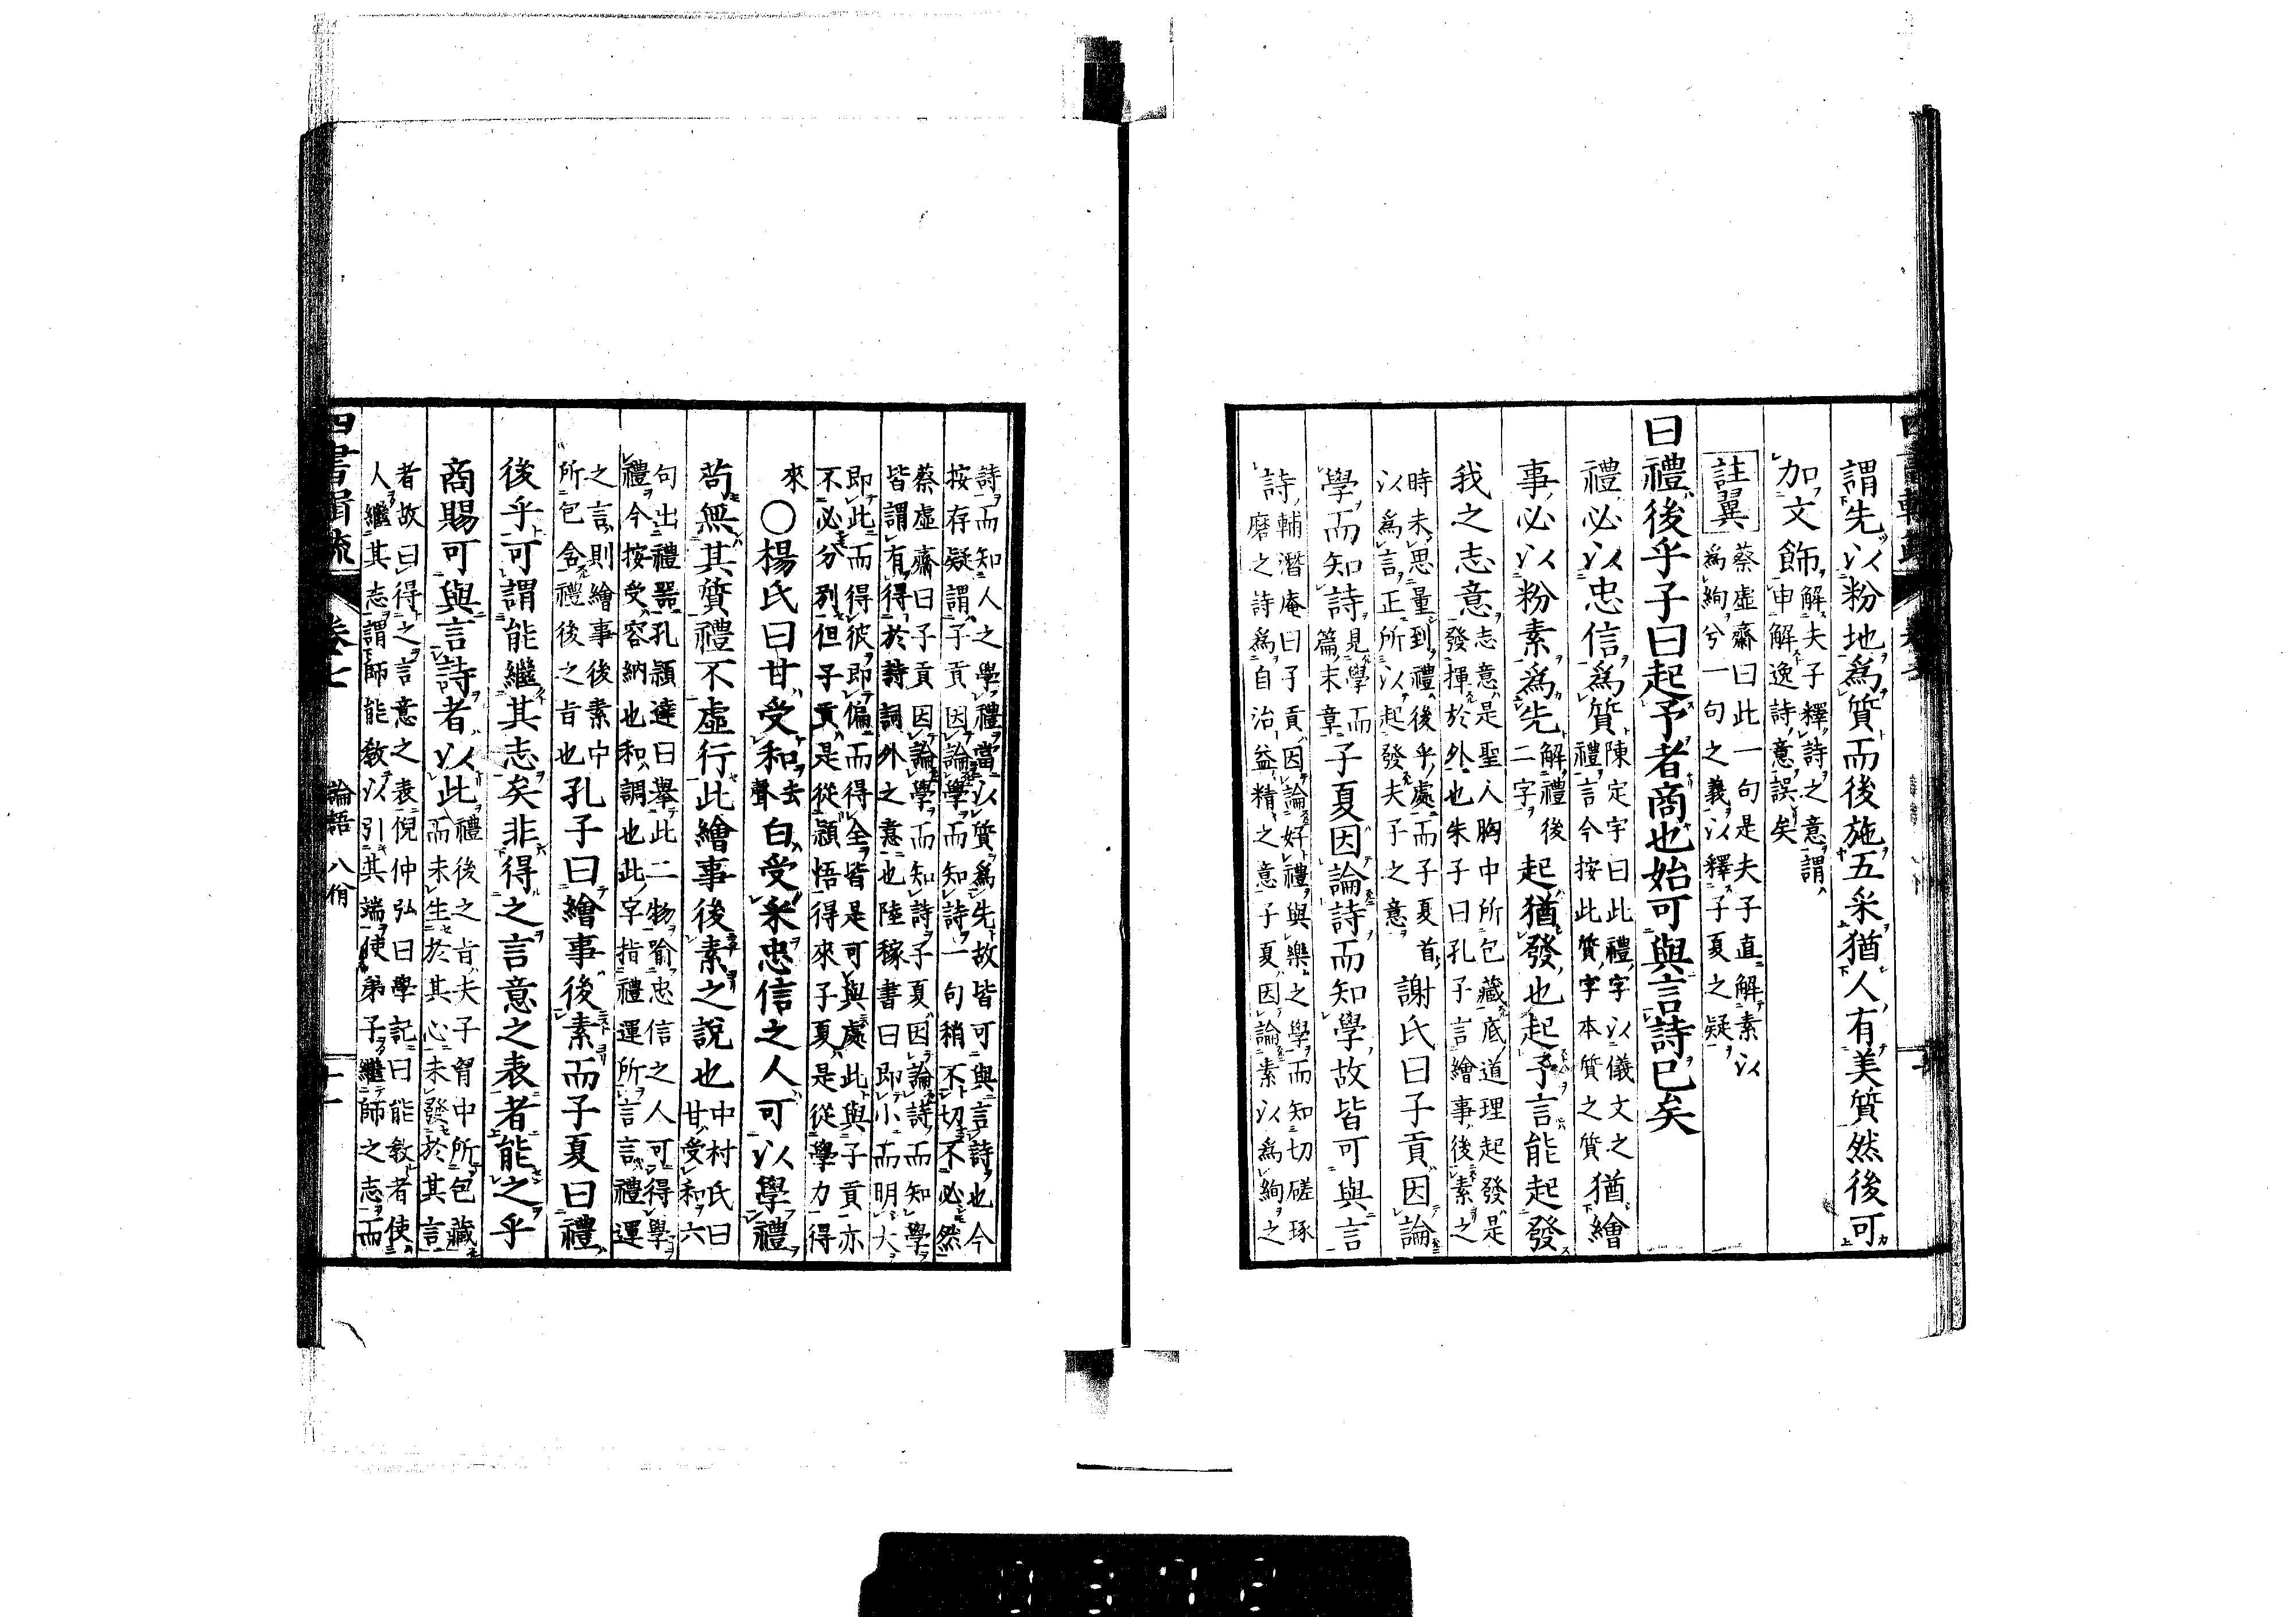 謂先以粉地爲質而後施五采猶人有美質然後可
加文飾解夫子釋詩之意謂
申解逸詩意誤矣
註翼
蔡虛齋曰此一句是夫子直解素以
爲絢兮一句之義以釋子夏之疑
曰禮後乎子曰起予者商也始可與言詩已矣
禮必以忠信爲質陳定宇曰此禮字以儀文之
禮言今按此質字本質之質
猶繪
事必以粉素爲先解禮後
二字
起猶發也起予言能起發
我之志意志意是聖人胸中所包藏底道理起發是
發揮於外也朱子曰孔子言繪事後素之
時未思量到禮後乎處而子夏首
以爲言正所以起發夫子之意
謝氏曰子貢因論
學而知詩見學而
篇末章
子夏因論詩而知學故皆可與言
詩輔潛庵曰子貢因論好禮與樂之學而知切磋琢
磨之詩爲自治益精之意子夏因論素以爲絢之
詩而知人之學禮當以質爲先故皆可與言詩也今
按存疑謂子貢因論學而知詩一句稍不切不必然
蔡虛齋曰子貢因論學而知詩子夏因論詩而知學
皆謂有得於詩詞外之意也陸稼書曰即小而明大
即此而得彼即偏而得全皆是可與處此與子貢亦
不必分別但子貢是從頴悟得來子夏是從學力得
來
○楊氏曰甘受和去
聲
白受采忠信之人可以學禮
苟無其質禮不虛行此繪事後素之說也中村氏曰
甘受和六
句出禮器孔頴達曰舉此二物喻忠信之人可得學
禮今按受容納也和調也此字指禮運所言言禮運
之言則繪事後素中
所包含禮後之旨也
孔子曰繪事後素而子夏曰禮
後乎可謂能繼其志矣非得之言意之表者能之乎
商賜可與言詩者以此禮後之旨夫子胷中所包藏
而未生於其心未發於其言
者故曰得之言意之表倪仲弘曰學記曰能教者使
人繼其志謂師能教以引其端使弟子繼師之志而
四書輯疏 卷七 論語 八佾 十一